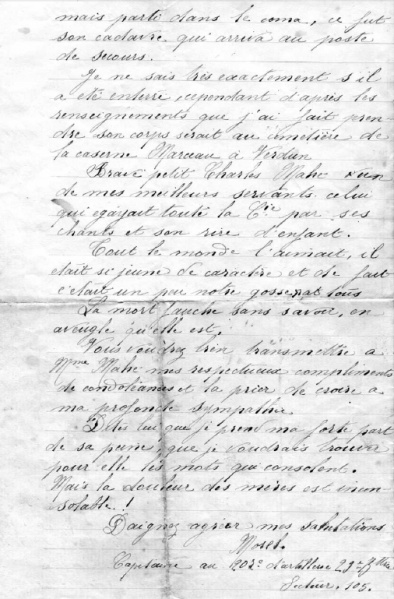 mais parti dans le coma, ce fut
son cadavre qui arriva au poste
de secours.
Je ne sais très exactement s'il
a été enterré, cependant d'après les
renseignements que j'ai fait pren
dre son corps serait au cimetière de
la caserne Marceau à Verdun
Brave petit Charles Mahe un
de mes meilleurs servants celui
qui égayait toute la Cie par ses
chants et son rire d'enfant.
Tout le monde l'aimait, il
était si jeune de caractère et de fait
c'était un peu notre gosse à tous
La mort fauche sans savoir, en
aveugle qu'elle est.
Vous voudrez bien transmettre à
Mme Mahe mes respectueux compliments
de condoléances et la prier de croire à
ma profonde sympathie.
Dites lui que je prend ma forte part
de sa peine, que je voudrais trouver
pour elle les mots qui consolent.
Mais la douleur des mères est incon
solable !
Daignez agréer mes salutations
Morel.
Capitaine au 202e d'artillerie 29e Bttie
Secteur 105.